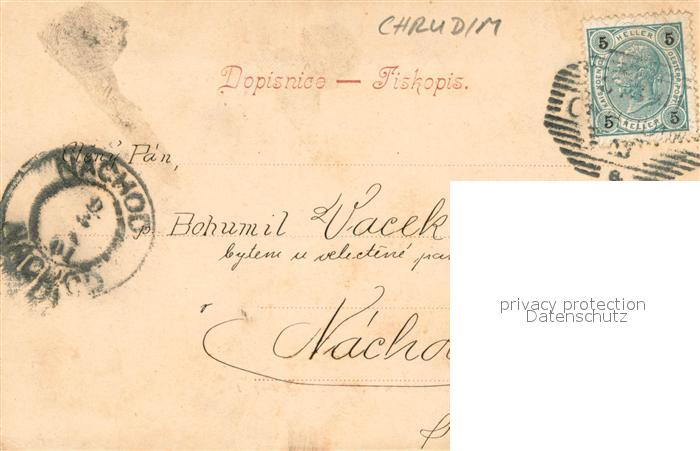 CHRUDIM
5 HELLER 5
5 HELLER 5
Dopisnice — Tiskopis.
Ctěný Pán,
NÁCHOD
NÁCHOD
p. Bohumil Vacek
bytem u velectěné
v
Nácho
privacy protection
Datenschutz